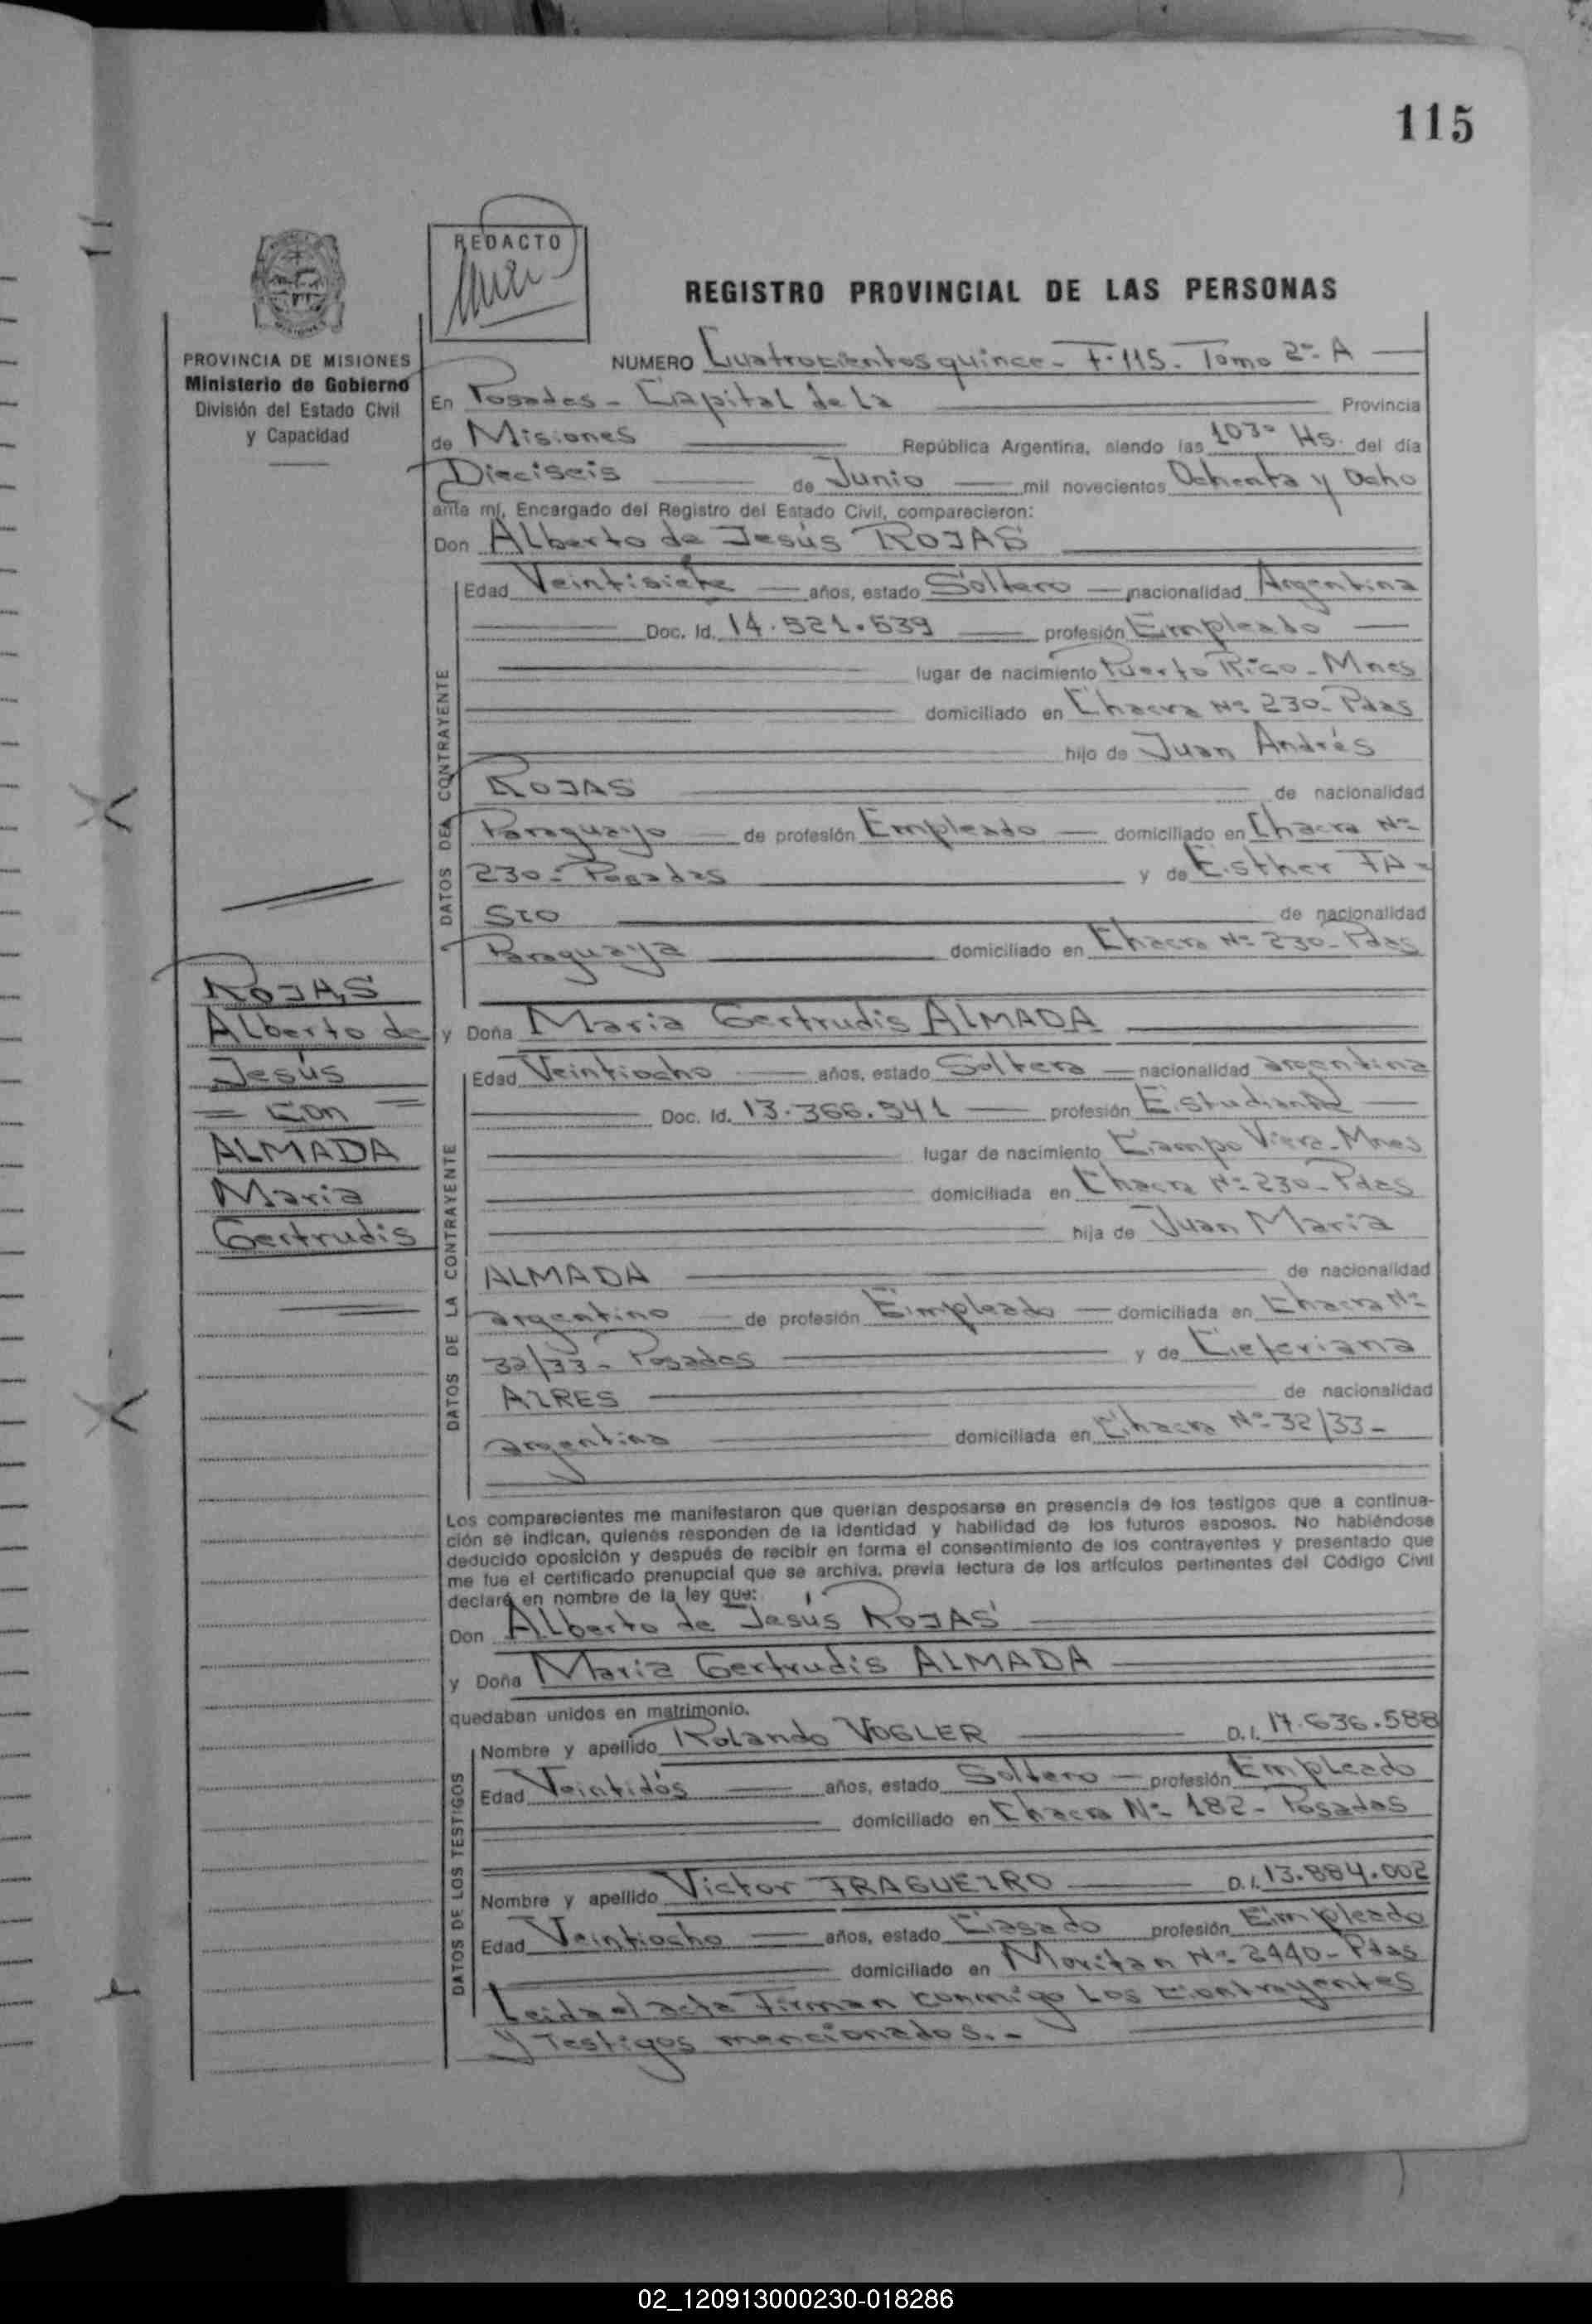 115
REDACTO
REGISTRO PROVINCIAL DE LAS PERSONAS
PROVINCIA DE MISIONES
Ministerio de Gobierno
División del Estado Civil
y Capacidad
NUMERO Cuatrocientos quince - F. 115 - Tomo 2º- A
En Posadas - Capital de la Provincia
de Misiones República Argentina, siendo las 10³⁰ Hs. del día
Dieciseis de Junio mil novecientos Ochenta y Ocho
ante mí, Encargado del Registro del Estado Civil, comparecieron:
Don Alberto de Jesús ROJAS
DATOS DEL CONTRAYENTE
Edad Veintisiete años, estado Soltero nacionalidad Argentina
Doc. Id. 14.521.539 profesión Empleado
lugar de nacimiento Puerto Rico - Mnes
domiciliado en Chacra Nº 230 - Pdas
hijo de Juan Andrés
ROJAS de nacionalidad
Paraguayo de profesión Empleado domiciliado en Chacra Nº
230 - Posadas y de Esther FA-
SIO de nacionalidad
Paraguaya domiciliado en Chacra Nº 230 - Pdas
ROJAS
Alberto de
Jesús
= Con =
ALMADA
Maria
Gertrudis
y Doña Maria Gertrudis ALMADA
DATOS DE LA CONTRAYENTE
Edad Veintiocho años, estado Soltera nacionalidad argentina
Doc. Id. 13.366.541 profesión Estudiante
lugar de nacimiento Campo Viera - Mnes
domiciliada en Chacra Nº 230 - Pdas
hija de Juan Maria
ALMADA de nacionalidad
argentino de profesión Empleado domiciliada en Chacra Nº
32/33 - Posadas y de Ceferiana
AIRES de nacionalidad
argentina domiciliada en Chacra Nº 32/33 -
Los comparecientes me manifestaron que querían desposarse en presencia de los testigos que a continua-
ción se indican, quienes responden de la identidad y habilidad de los futuros esposos. No habiéndose
deducido oposición y después de recibir en forma el consentimiento de los contrayentes y presentado que
me fue el certificado prenupcial que se archiva, previa lectura de los artículos pertinentes del Código Civil
declaré en nombre de la ley que:
Don Alberto de Jesús ROJAS
y Doña Maria Gertrudis ALMADA
quedaban unidos en matrimonio.
DATOS DE LOS TESTIGOS
Nombre y apellido Rolando VOGLER D.I. 17.636.588
Edad Veintidós años, estado Soltero profesión Empleado
domiciliado en Chacra Nº 182 - Posadas
Nombre y apellido Victor FRAGUEIRO D.I. 13.884.002
Edad Veintiocho años, estado Casado profesión Empleado
domiciliado en Moritan Nº 2440 - Pdas
Leida el acta Firman conmigo Los Contrayentes
y Testigos mencionados. -
02_120913000230-018286